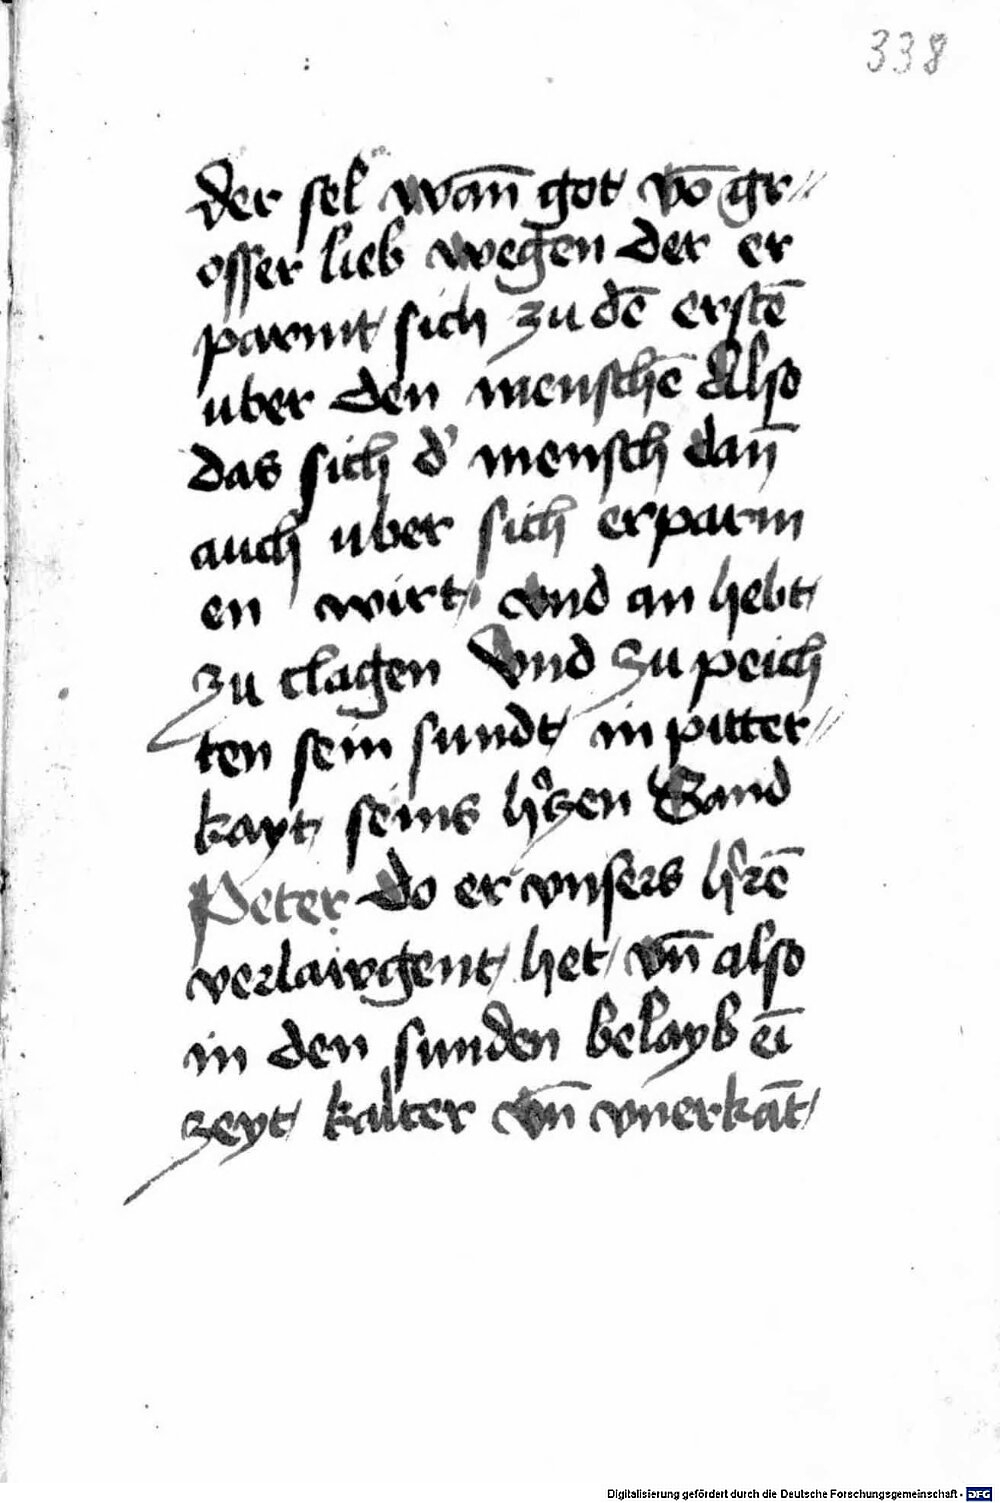 338
der sel wan̄ got vō gr//
osser lieb wegen der er
parmt sich zu dē erstē
uber den menschē Also
das sich d' mensch dan̄
auch uber sich erparm
en wirt/ vnd an hebt/
zu clagen Vnd zu peich
ten sein sundt/ in pitter//
kayt/ seins h'zen Sand
Peter do er vnsers h'rē
verlawgent/ het/ vn̄ also
in den sunden belayb eī
zeyt/ kalter vn̄ vnerkāt/
Digitalisierung gefördert durch die Deutsche Forschungsgemeinschaft - DFG